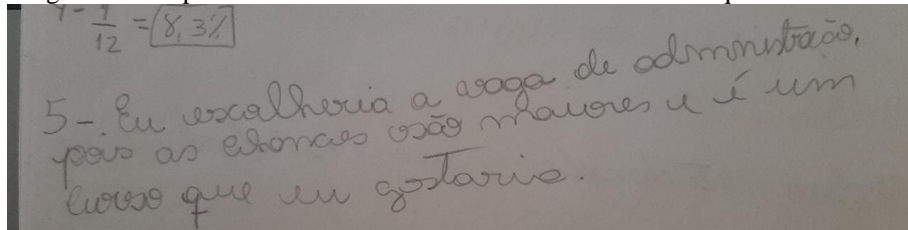 4 - 1/12 = 8,3%
5-. Eu escolheria a vaga de admnistração,
pois as chances são maiores e é um
curso que eu gostaria.